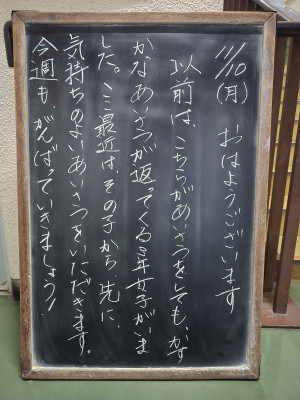 11/10(月) おはようございます
以前は、こちらがあいさつをしても、かす
かなあいさつが返ってくる年女子がいま
した。ここ最近は、その子から、先に、
気持ちのよいあいさつをいただきます。
今週も、がんばっていきましょう!